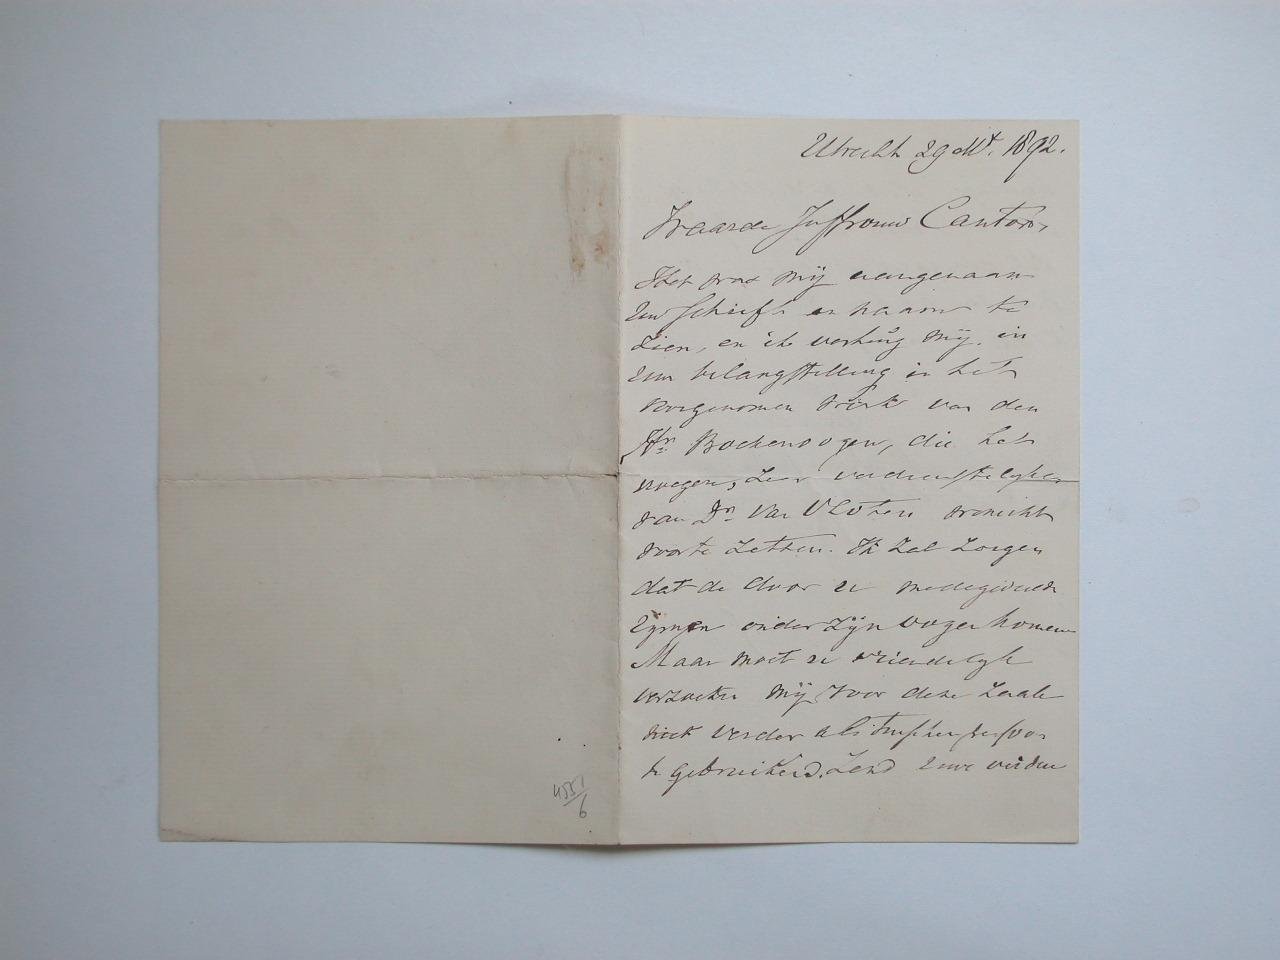 Utrecht 29 Oct. 1892.
Waarde Juffrouw Cantor,
Het was mij aangenaam
Uw schrift en naam te
zien, en ik verheug mij in
Uw belangstelling in het
voorgenomen werk van den
Hr Boekenoogen, die het
zeer verdienstelijke
van Dr Van Vloten wenscht
voort te zetten. Ik zal zorgen
dat de door U medegedeelde
rijmen onder zijn oogen komen
Maar moet U vriendelijk
verzoeken mij voor deze zaak
niet verder als
te gebruiken. Zend Uwe verdere
4551/6